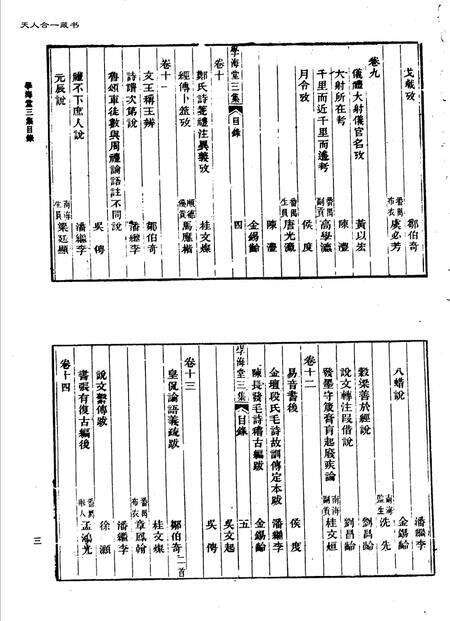 天人合一藏书
學海堂三集目錄
戈戟攷
鄒伯奇
番禺布衣
虞必芳
卷九
儀禮大射儀官名攷
黃以宏
大射所在考
陳澧
千里而近千里而遙考
番禺副貢
高學瀛
侯度
月令攷
番禺生員
唐光瀛
陳澧
金錫齡
學海堂三集
目錄
四
卷十
鄭氏詩箋禮注異義攷
桂文燦
經傳卜筮攷
順德優貢
馬應楷
卷十一
文王稱王辨
鄒伯奇
詩譜次第說
潘繼李
魯頌車徒數與周禮論語註不同說
吳俜
禮不下庶人說
潘繼李
元辰說
南海生員
梁廷顯
八蜡說
潘繼李
金錫齡
南海監生
沈先
穀梁善於經說
劉昌齡
說文轉注叚借說
劉昌齡
發墨守箴膏肓起廢疾論
南海副貢
桂文烜
卷十二
易音書後
侯度
金壇段氏毛詩故訓傳定本跋
潘繼李
陳長發毛詩稽古編跋
金錫齡
學海堂三集
目錄
五
吳文起
吳俜
卷十三
皇侃論語義疏跋
鄒伯奇
二首
桂文燦
番禺布衣
章鳳翰
潘繼李
說文繫傳跋
徐灝
書張有復古編後
番禺舉人
孟鴻光
卷十四
三